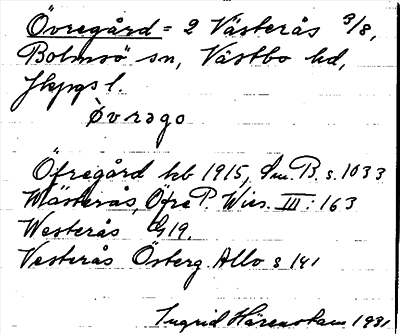 Övregård = 2 Västerås 3/8,
Bolmsö sn, Västbo hd,
Jkpgs l.
övrago
Öfregård hb 1915, Sm. B. s. 1033
Wästerås, Öfre P. Wies. III: 163
Westerås G19.
Vesterås Österg. Allv s 141
Ingrid 1931